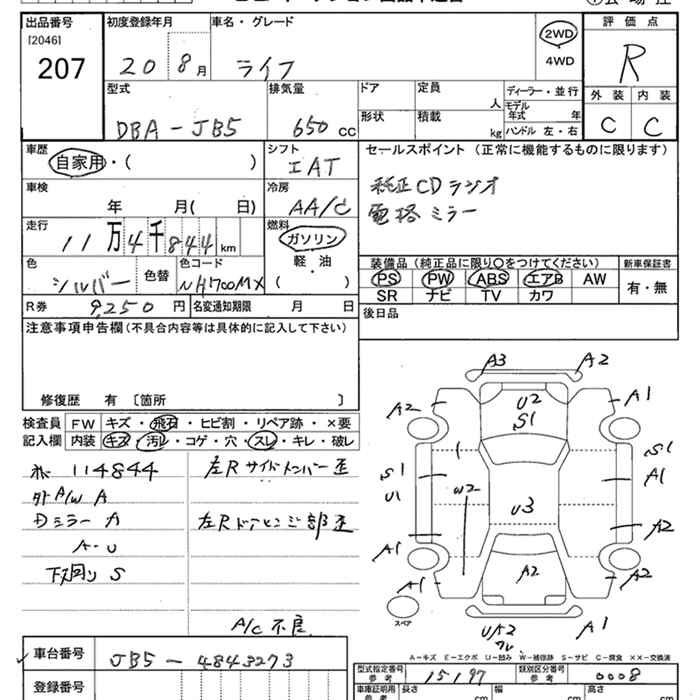 出品番号
[2046]
207
初度登録年月
20 8月
車名・グレード
ライフ
2WD
4WD
評価点
R
外装 内装
C C
型式
DBA-JB5
排気量
650 cc
ドア
定員
人
形状
積載
kg
ディーラー・並行
モデル年式 年
ハンドル 左・右
車歴
自家用・( )
シフト
IAT
車検
年 月( 日)
冷房
AA/C
走行
11万4千844 km
燃料
ガソリン
軽・油
( )
色
シルバー
色替
色コード
NH700MX
R券 9,250 円
名変通知期限 月 日
セールスポイント(正常に機能するものに限ります)
純正CDラジオ
電格ミラー
装備品(純正品に限り○をつけてください)
PS PW ABS エアB AW
SR ナビ TV カワ
新車保証書
有・無
後日品
注意事項申告欄(不具合内容等は具体的に記入して下さい)
修復歴 有〔箇所 〕
検査員記入欄
FW キズ・飛石・ヒビ割・リペア跡・×要
内装 キズ・汚レ・コゲ・穴・スレ・キレ・破レ
114844
外A/W A
Dミラー A
A-U
下廻り S
左Rサイドメンバー歪
左Rドアヒンジ部歪
A/C不良
A3 A2
A2 U2 S1 A1
S1 U1 W2 U3 S1 A1
A2
A1 A2 A2
A1
スペア
A1
A-キズ E-エクボ U-凹み W-補修跡 S-サビ C-腐食 ××-交換済
車台番号 JB5-4843273
登録番号
型式指定番号 参考 15197
類別区分番号 参考 0008
車庫証明用 参考
長さ cm
幅 cm
高さ cm